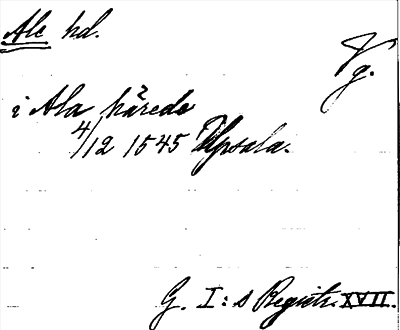 Ale hd.
Vg.
i Ala härede
4/12 1545 Upsala.
G. I:s Registr. XVII.